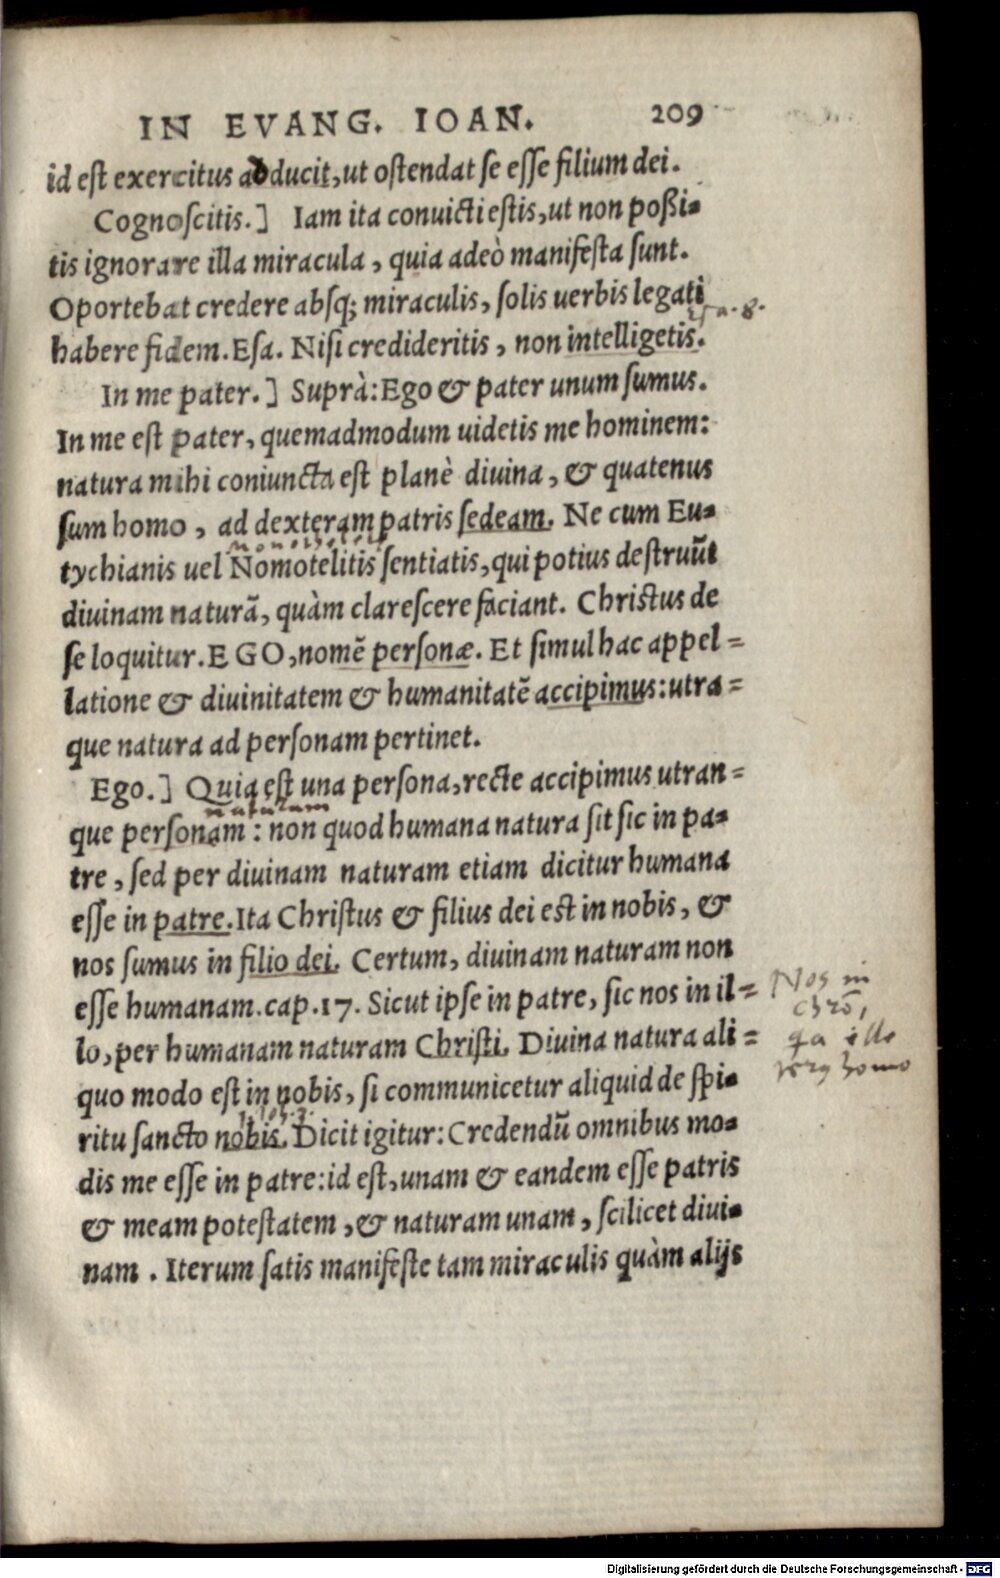 IN EVANG. IOAN. 209
id est exercitus abducit, ut ostendat se esse filium dei.
Cognoscitis.] Iam ita convicti estis, ut non poßi-
tis ignorare illa miracula, quia adeò manifesta sunt.
Oportebat credere absq; miraculis, solis uerbis legati
habere fidem. Esa. Nisi credideritis, non intelligetis.
In me pater.] Suprà: Ego & pater unum sumus.
In me est pater, quemadmodum uidetis me hominem:
natura mihi coniuncta est planè diuina, & quatenus
sum homo, ad dexteram patris sedeam. Ne cum Eu-
tychianis uel Nomotelitis sentiatis, qui potius destruūt
diuinam naturā, quàm clarescere faciant. Christus de
se loquitur. EGO, nomē personæ. Et simul hac appel=
latione & diuinitatem & humanitatē accipimus: utra=
que natura ad personam pertinet.
Ego.] Quia est una persona, recte accipimus utran=
naturam
que personam: non quod humana natura sit sic in pa-
tre, sed per diuinam naturam etiam dicitur humana
esse in patre. Ita Christus & filius dei est in nobis, &
nos sumus in filio dei. Certum, diuinam naturam non
esse humanam. cap. 17. Sicut ipse in patre, sic nos in il=
lo, per humanam naturam Christi. Diuina natura ali=
quo modo est in nobis, si communicetur aliquid de spi-
ritu sancto nobis. Dicit igitur: Credendū omnibus mo-
dis me esse in patre: id est, unam & eandem esse patris
& meam potestatem, & naturam unam, scilicet diui-
nam. Iterum satis manifeste tam miraculis quàm alijs
Nos in
chrō,
qa ille
homo
Digitalisierung gefördert durch die Deutsche Forschungsgemeinschaft - DFG